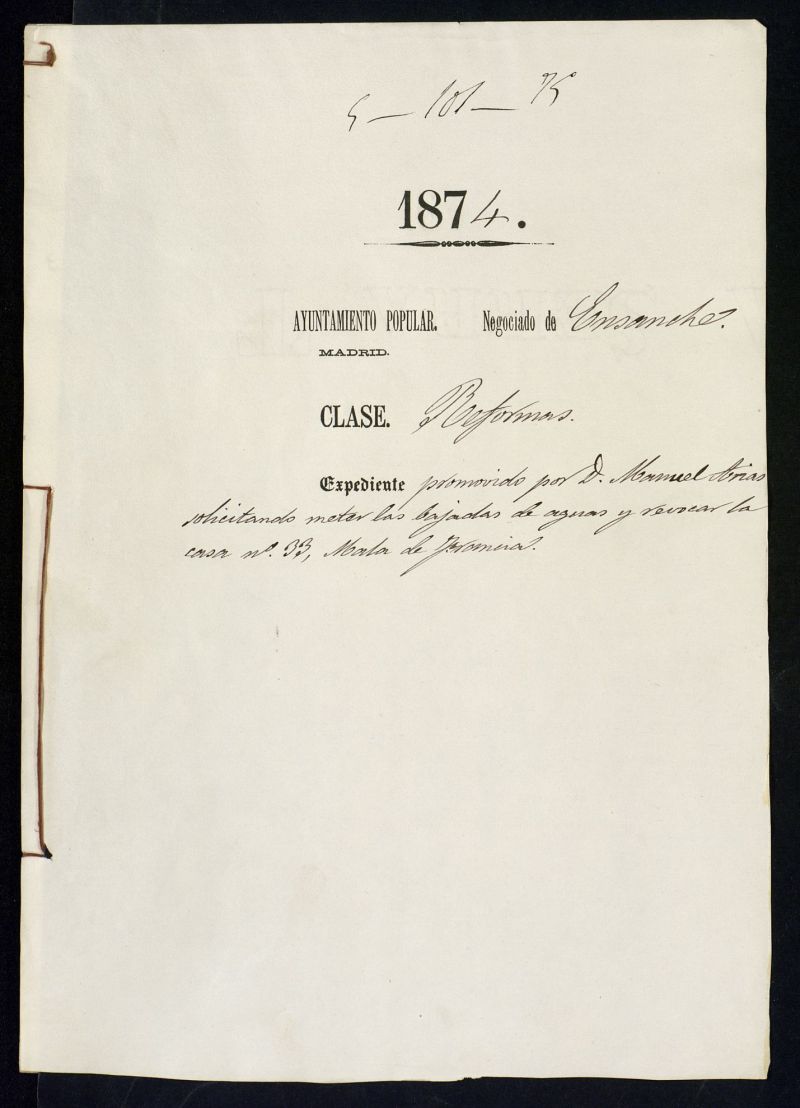 5 – 101 – 75
1874.
AYUNTAMIENTO POPULAR. Negociado de Ensanche.
MADRID.
CLASE. Reformas.
Expediente promovido por D. Manuel Arias
solicitando meter las bajadas de aguas y revocar la
casa nº. 33, Mala de Francia.